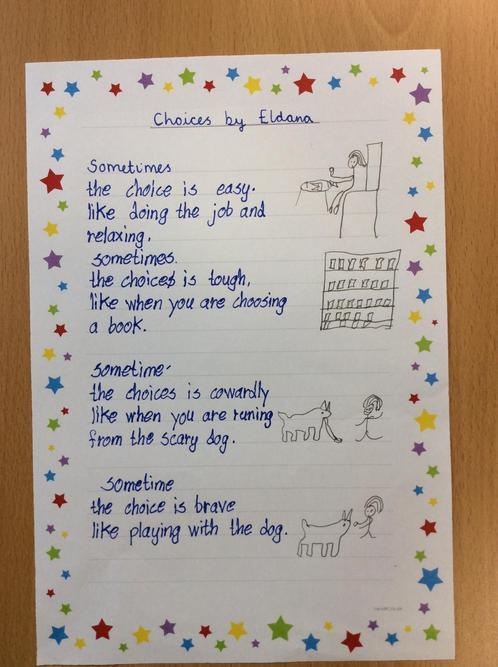 Choices by Eldana
Sometimes
the choice is easy.
like doing the job and
relaxing,
sometimes.
the choices is tough,
like when you are choosing
a book.
sometime
the choices is cowardly
like when you are runing
from the scary dog.
sometime
the choice is brave
like playing with the dog.